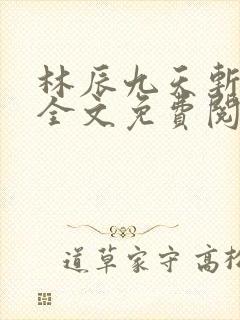 林辰九天斬
全文免費閱
道草家守高松